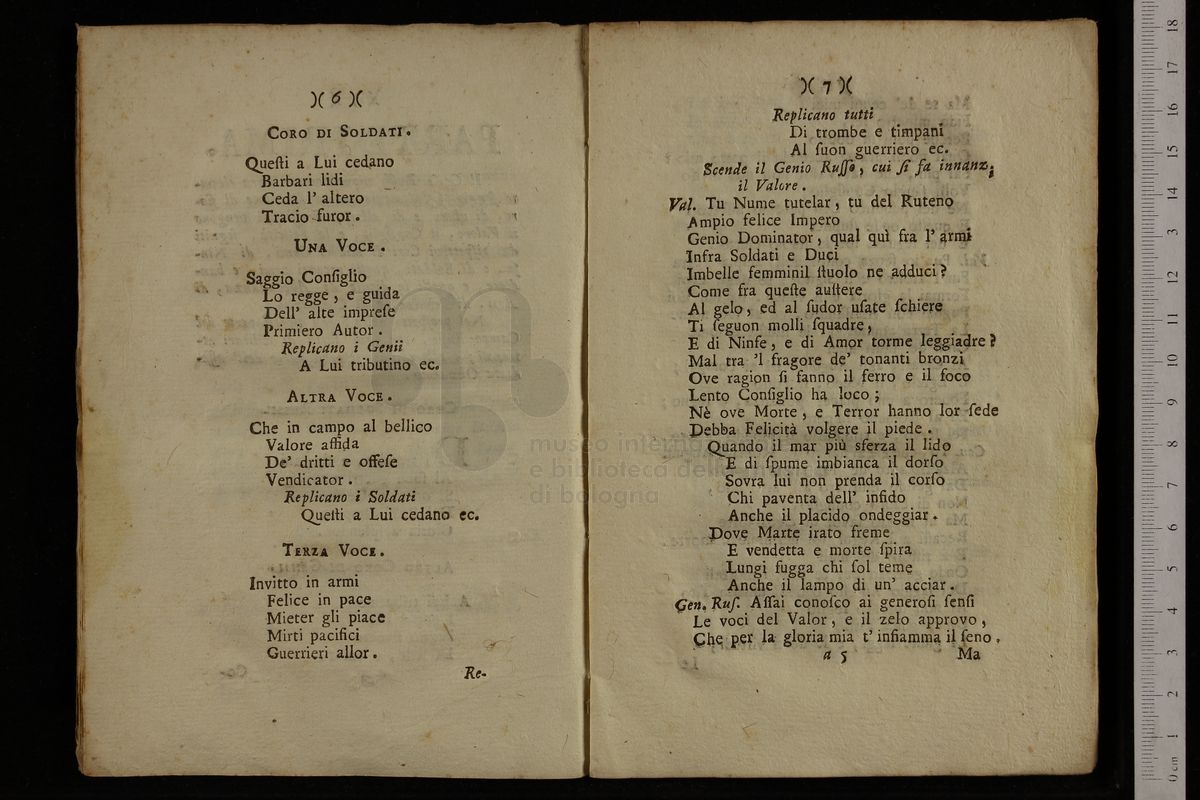 )( 6 )(
CORO DI SOLDATI.
Queſti a Lui cedano
Barbari lidi
Ceda l' altero
Tracio furor.
UNA VOCE.
Saggio Conſiglio
Lo regge, e guida
Dell' alte impreſe
Primiero Autor.
Replicano i Genii
A Lui tributino ec.
ALTRA VOCE.
Che in campo al bellico
Valore affida
De' dritti e offeſe
Vendicator.
Replicano i Soldati
Queſti a Lui cedano ec.
TERZA VOCE.
Invitto in armi
Felice in pace
Mieter gli piace
Mirti pacifici
Guerrieri allor.
Re-
)( 7 )(
Replicano tutti
Di trombe e timpani
Al ſuon guerriero ec.
Scende il Genio Ruſſo, cui ſi fa innanzi
il Valore.
Val. Tu Nume tutelar, tu del Ruteno
Ampio felice Impero
Genio Dominator, qual quì fra l' armi
Infra Soldati e Duci
Imbelle femminil ſtuolo ne adduci?
Come fra queſte auſtere
Al gelo, ed al ſudor uſate ſchiere
Ti ſeguon molli ſquadre,
E di Ninfe, e di Amor torme leggiadre?
Mal tra 'l fragore de' tonanti bronzi
Ove ragion ſi fanno il ferro e il foco
Lento Conſiglio ha loco;
Nè ove Morte, e Terror hanno lor ſede
Debba Felicità volgere il piede.
Quando il mar più sferza il lido
E di ſpume imbianca il dorſo
Sovra lui non prenda il corſo
Chi paventa dell' infido
Anche il placido ondeggiar.
Dove Marte irato freme
E vendetta e morte ſpira
Lungi fugga chi ſol teme
Anche il lampo di un' acciar.
Gen. Ruſ. Aſſai conoſco ai generoſi ſenſi
Le voci del Valor, e il zelo approvo,
Che per la gloria mia t' infiamma il ſeno.
a 5 Ma
museo interna
e biblioteca del
di bologna
0 cm 1 2 3 4 5 6 7 8 9 10 11 12 13 14 15 16 17 18